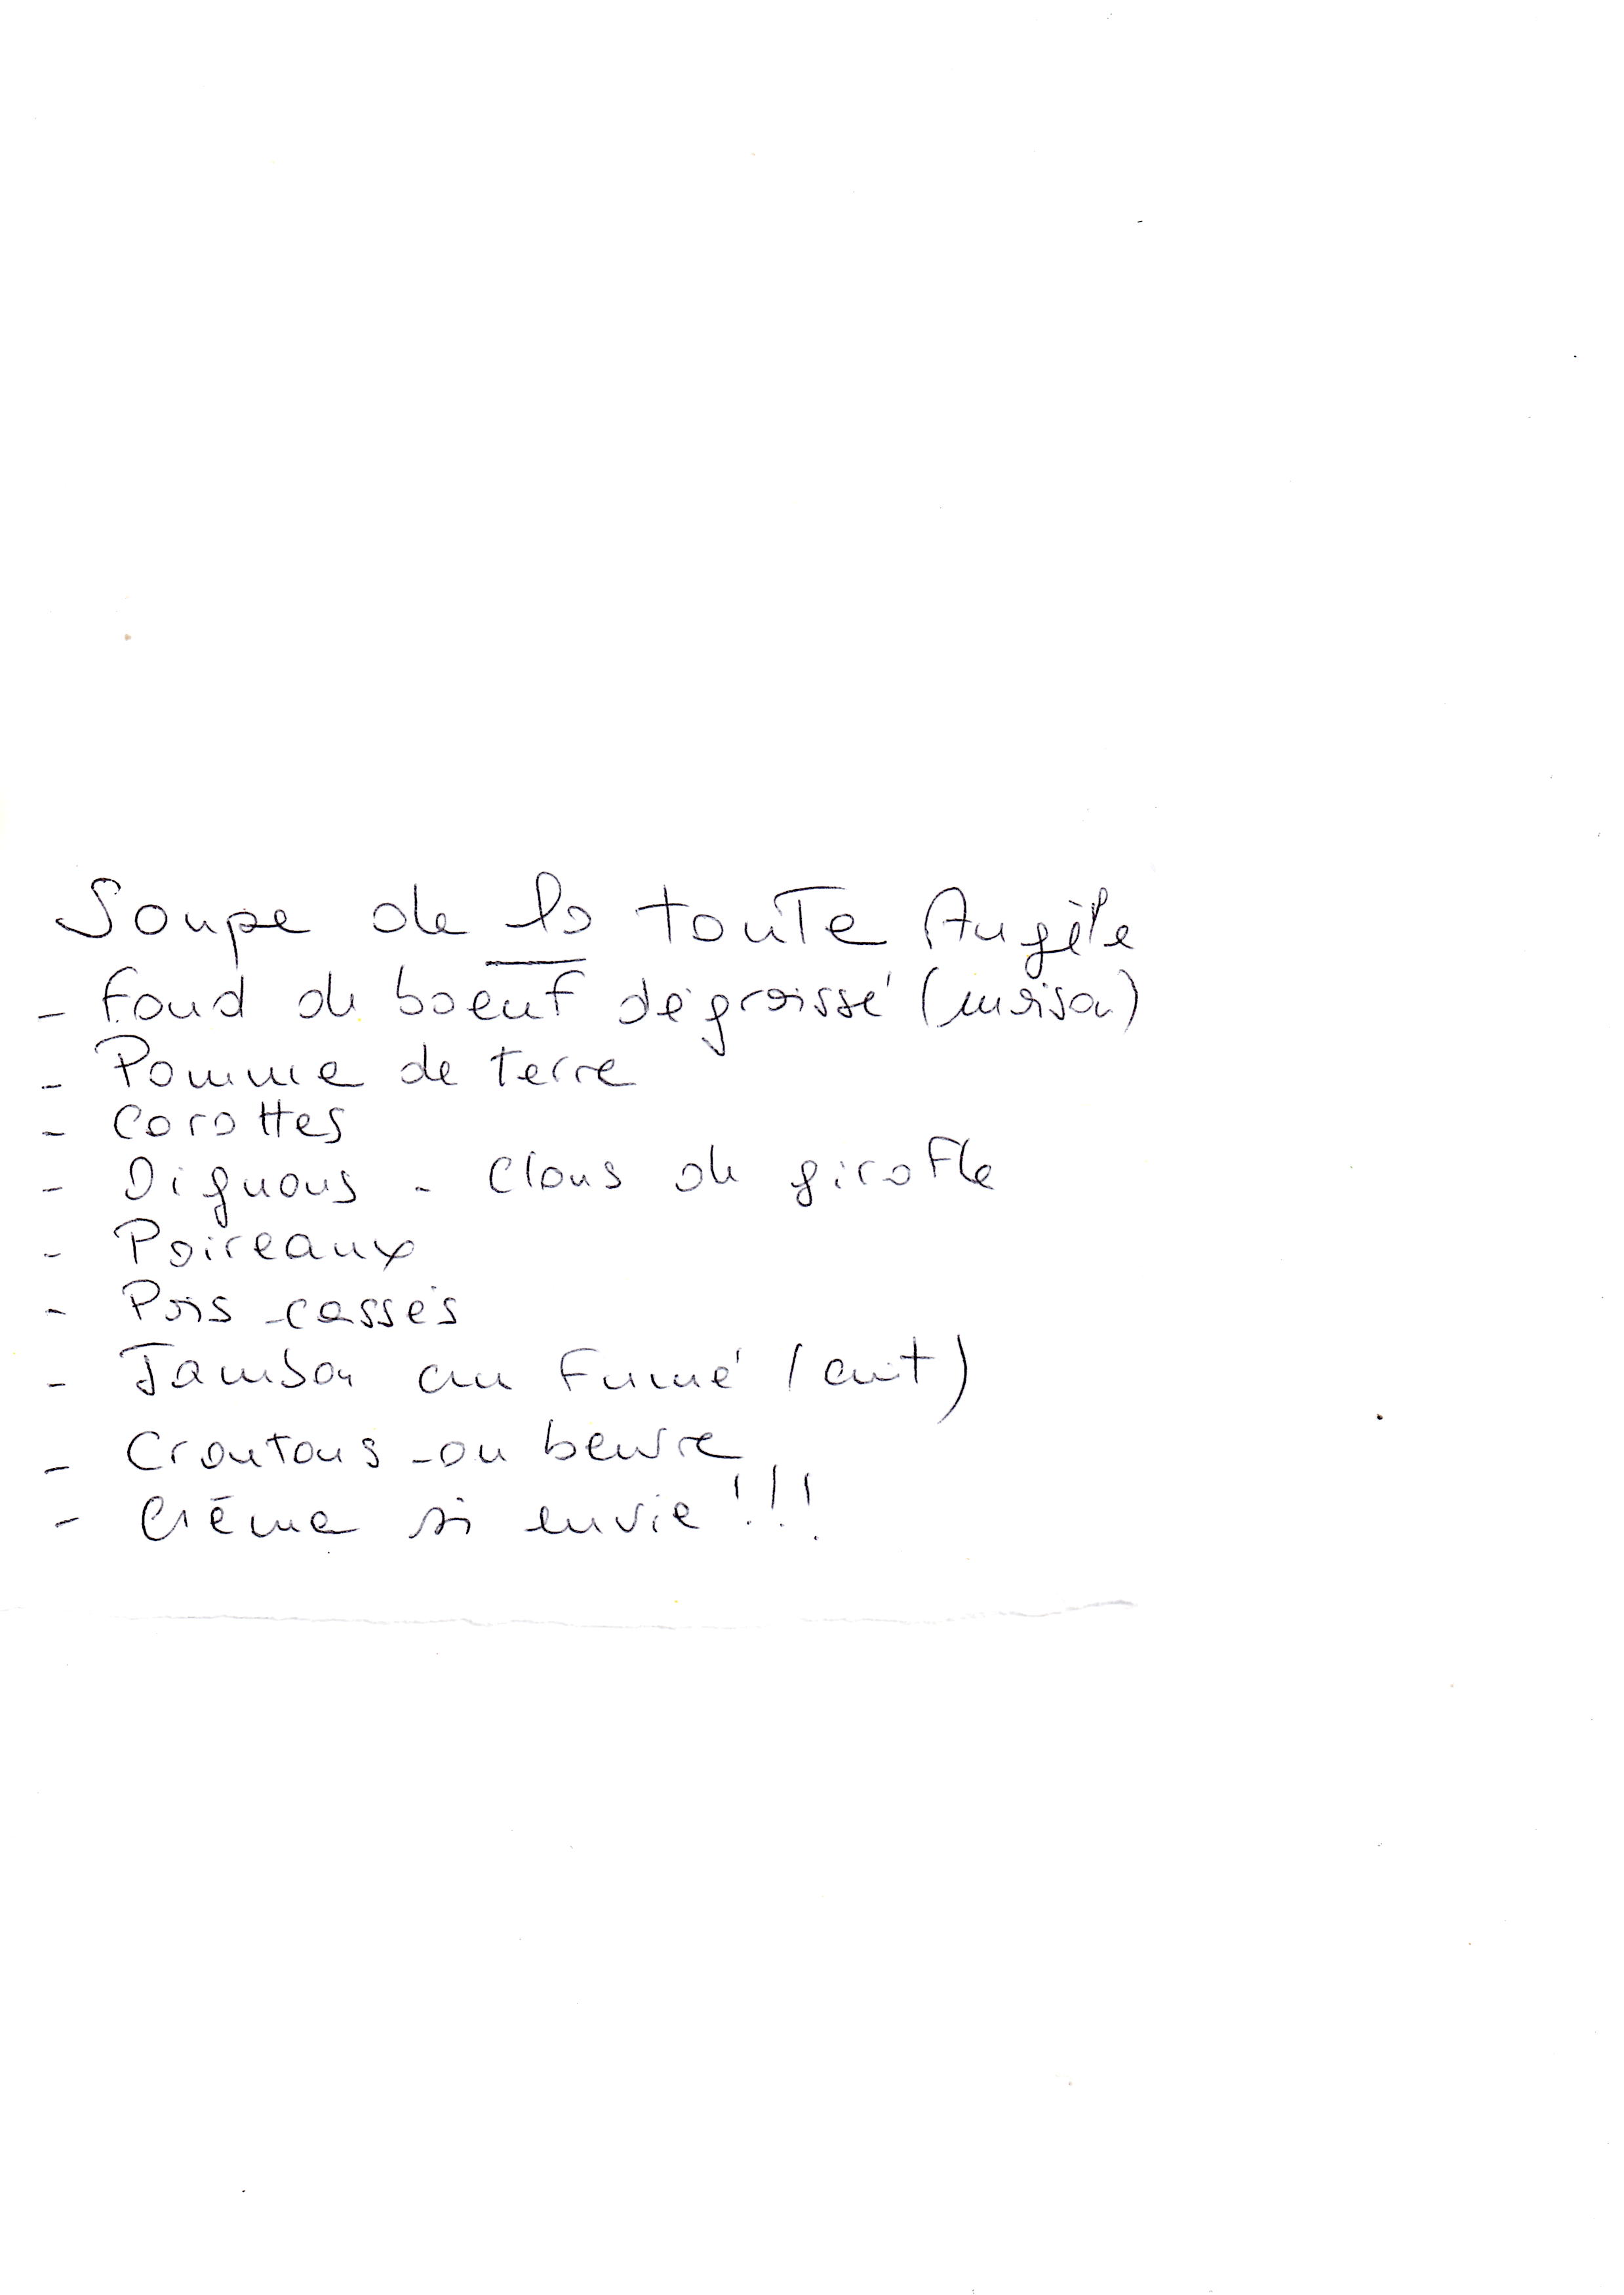 Soupe de la toute Angèle
- Fond de boeuf dégraissé (maison)
- Pomme de terre
- Carottes
- Oignons - Clous de girofle
- Poireaux
- Pois cassés
- Jambon au Fumé (cuit)
- Croutons au beurre
- Crème si envie !!!